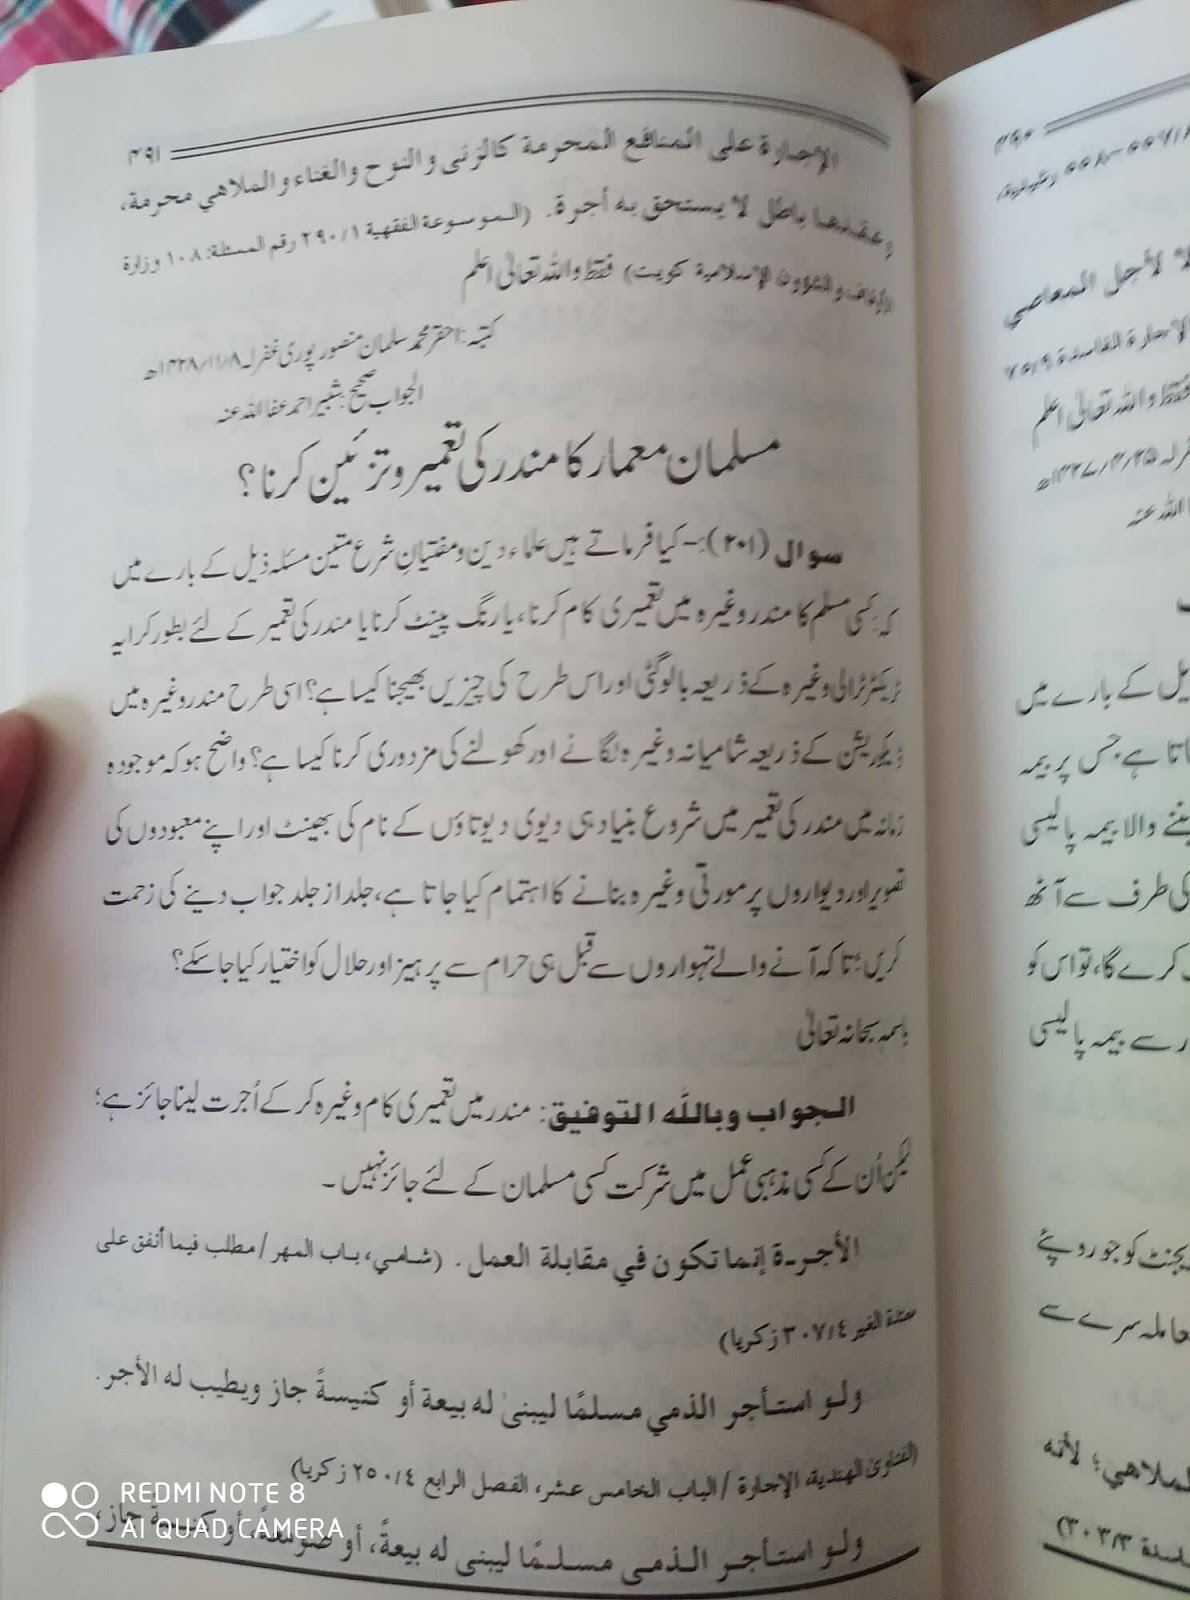 ۳۹۱
الإجارة على المنافع المحرمة كالزنى والنوح والغناء والملاهي محرمة،
وعقدها باطل لا يستحق به أجرة. (الموسوعة الفقهية ۲۹۰/۱ رقم المسئلة: ۱۰۸ وزارة
الأوقاف والشؤون الإسلامية كويت) فقط واللہ تعالیٰ اعلم
کتبہ: احقر محمد سلمان منصور پوری غفرلہ ۱۴۲۸/۱۱/۸ھ
الجواب صحیح: شبیر احمد عفا اللہ عنہ
مسلمان معمار کا مندر کی تعمیر وتزئین کرنا؟
سوال (۲۰۱):- کیا فرماتے ہیں علماء دین ومفتیانِ شرع متین مسئلہ ذیل کے بارے میں
کہ: کسی مسلم کا مندر وغیرہ میں تعمیری کام کرنا، یا رنگ پینٹ کرنا یا مندر کی تعمیر کے لئے بطور کرایہ
ٹریکٹر ٹرالی وغیرہ کے ذریعہ بالو گٹی اور اس طرح کی چیزیں بھیجنا کیسا ہے؟ اسی طرح مندر وغیرہ میں
ڈیکوریشن کے ذریعہ شامیانہ وغیرہ لگانے اور کھولنے کی مزدوری کرنا کیسا ہے؟ واضح ہو کہ موجودہ
زمانہ میں مندر کی تعمیر میں شروع بنیاد ہی دیوی دیوتاؤں کے نام کی بھینٹ اور اپنے معبودوں کی
تصویر اور دیواروں پر مورتی وغیرہ بنانے کا اہتمام کیا جاتا ہے، جلد از جلد جواب دینے کی زحمت
کریں؛ تاکہ آنے والے تہواروں سے قبل ہی حرام سے پرہیز اور حلال کو اختیار کیا جاسکے؟
باسمہ سبحانہ تعالیٰ
الجواب وبالله التوفيق: مندر میں تعمیری کام وغیرہ کرکے اُجرت لینا جائز ہے؛
لیکن اُن کے کسی مذہبی عمل میں شرکت کسی مسلمان کے لئے جائز نہیں۔
الأجرة إنما تكون في مقابلة العمل. (شامي، باب المهر / مطلب فيما أنفق على
معتدة الغير ۳۰۷/۴ زكريا)
ولو استأجر الذمي مسلمًا ليبنىٰ له بيعة أو كنيسةً جاز ويطيب له الأجر.
(الفتاوىٰ الهندية، الإجارة / الباب الخامس عشر، الفصل الرابع ۲۵۰/۴ زكريا)
ولو استأجر الذمي مسلمًا ليبنى له بيعةً، أو صومعةً، أو كنيسة جاز،
۳۹۰
لا لأجل المعاصي
الإجارة الفاسدة ۷۵/۹
فقط واللہ تعالیٰ اعلم
۱۴۲۷/۴/۲۵ھ
اللہ عنہ
ذیل کے بارے میں
جاتا ہے جس پر بیمہ
بننے والا بیمہ پالیسی
کی طرف سے آٹھ
کرے گا، تو اس کو
سے بیمہ پالیسی
ایجنٹ کو جو روپئے
معاملہ سرے سے
الملاهي؛ لأنه
۳۰۳/۳)
REDMI NOTE 8
AI QUAD CAMERA